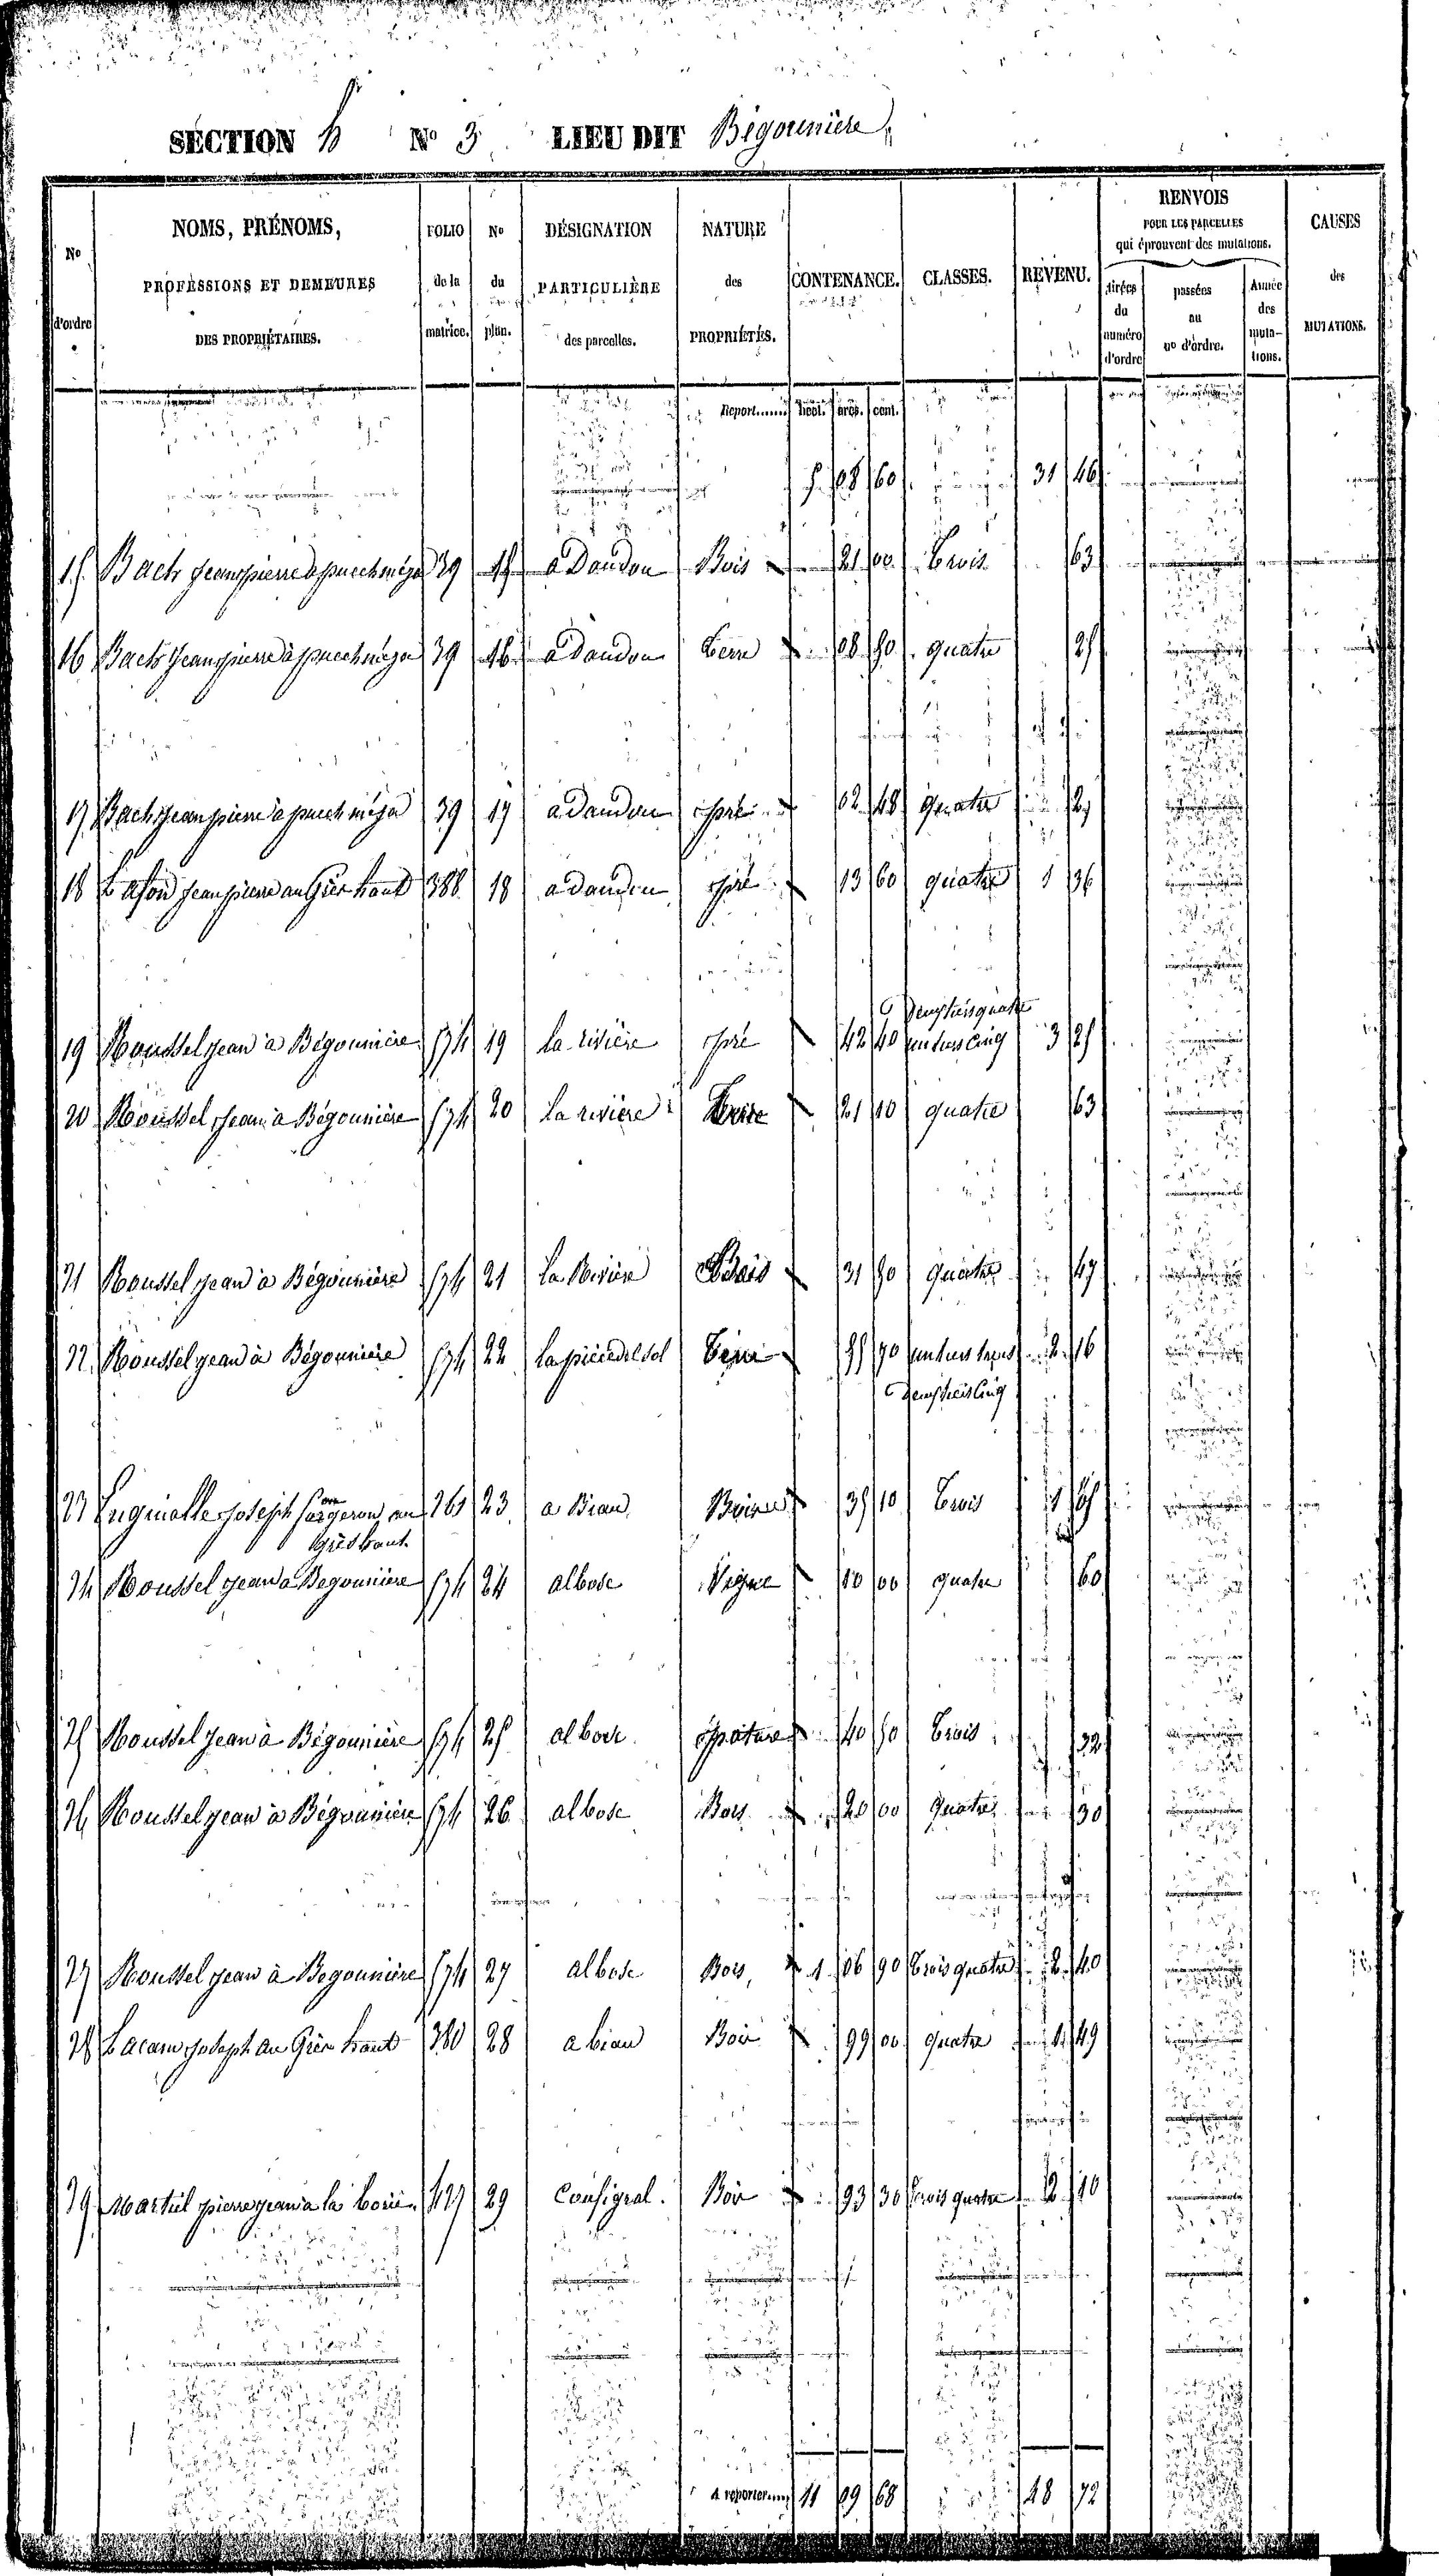 SECTION h N° 3 LIEU DIT Bégounière
No d'ordre
NOMS, PRÉNOMS, PROFESSIONS ET DEMEURES DES PROPRIÉTAIRES.
FOLIO de la matrice.
No du plan.
DÉSIGNATION PARTICULIÈRE des parcelles.
NATURE des PROPRIÉTÉS.
CONTENANCE.
CLASSES.
REVENU.
RENVOIS POUR LES PARCELLES qui éprouvent des mutations.
tirées du numéro d'ordre
passées au no d'ordre.
Année des muta-tions.
CAUSES des MUTATIONS.
Report...... hect. ares. cent.
08 60 31 46
15 Bach jean pierre à puech méja 39 15 a Dandou Bois 21 00 trois 63
16 Bach jean pierre à puech méja 39 16 a Dandou terre 08 50 quatre 25
17 Bach jean pierre à puech méja 39 17 a Dandou pré 02 48 quatre 25
18 Lafon jean pierre au Grès haut 388 18 a Dandou pré 13 60 quatre 1 36
19 Roussel jean à Bégounière 574 19 la rivière pré 42 40 un tiers cinq 3 25
Deux tiers quatre
20 Roussel jean à Bégounière 574 20 la rivière terre 21 10 quatre 63
21 Roussel jean à Bégounière 574 21 la Rivière Bois 31 50 quatre 47
22 Roussel jean à Bégounière 574 22 la pièce del sol terre 55 70 un tiers trois 2 16
Deux tiers cinq
23 Joseph forgeron au 361 23 a Biau Bois 35 10 trois 1 05
Grès haut
24 Roussel jean à Begounière 574 24 albosc Vigne 10 00 quatre 60
25 Roussel jean à Bégounière 574 25 albosc pature 40 50 trois 32
26 Roussel jean à Bégounière 574 26 albosc Bois 20 00 quatre 30
27 Roussel jean à Begounière 574 27 albosc Bois 1 06 90 trois quatre 2 40
28 Lacam joseph au Grès haut 380 28 a biau Bois 99 00 quatre 1 49
29 Martil pierre jean à la borie 427 29 Consigral. Bois 93 30 trois quatre 2 10
A reporter..... 11 09 68 48 72